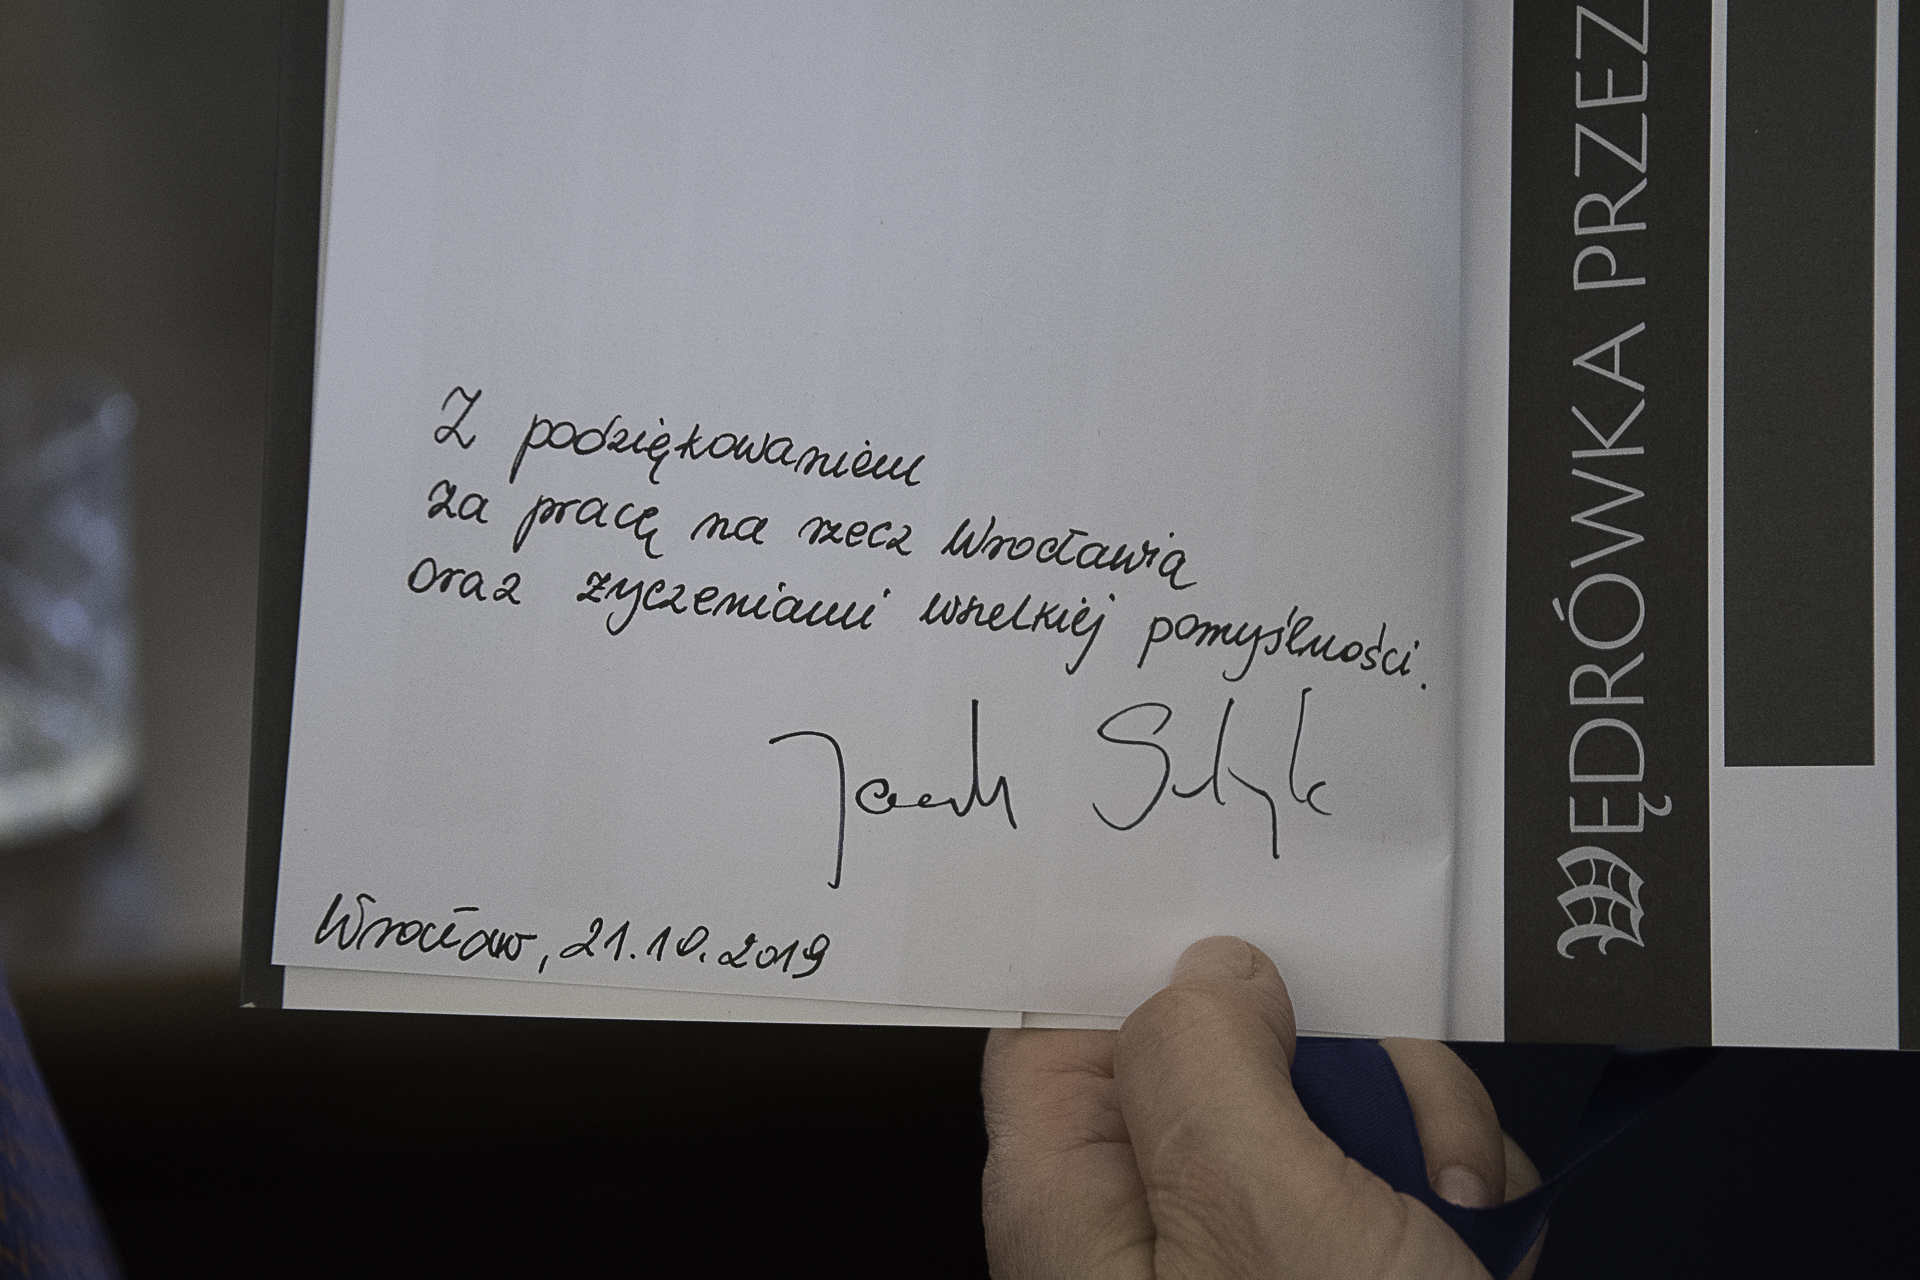 Z podziękowaniem
za pracę na rzecz Wrocławia
oraz życzeniami wszelkiej pomyślności.
Jacek Sutryk
Wrocław, 21.10.2019
WĘDRÓWKA PRZEZ